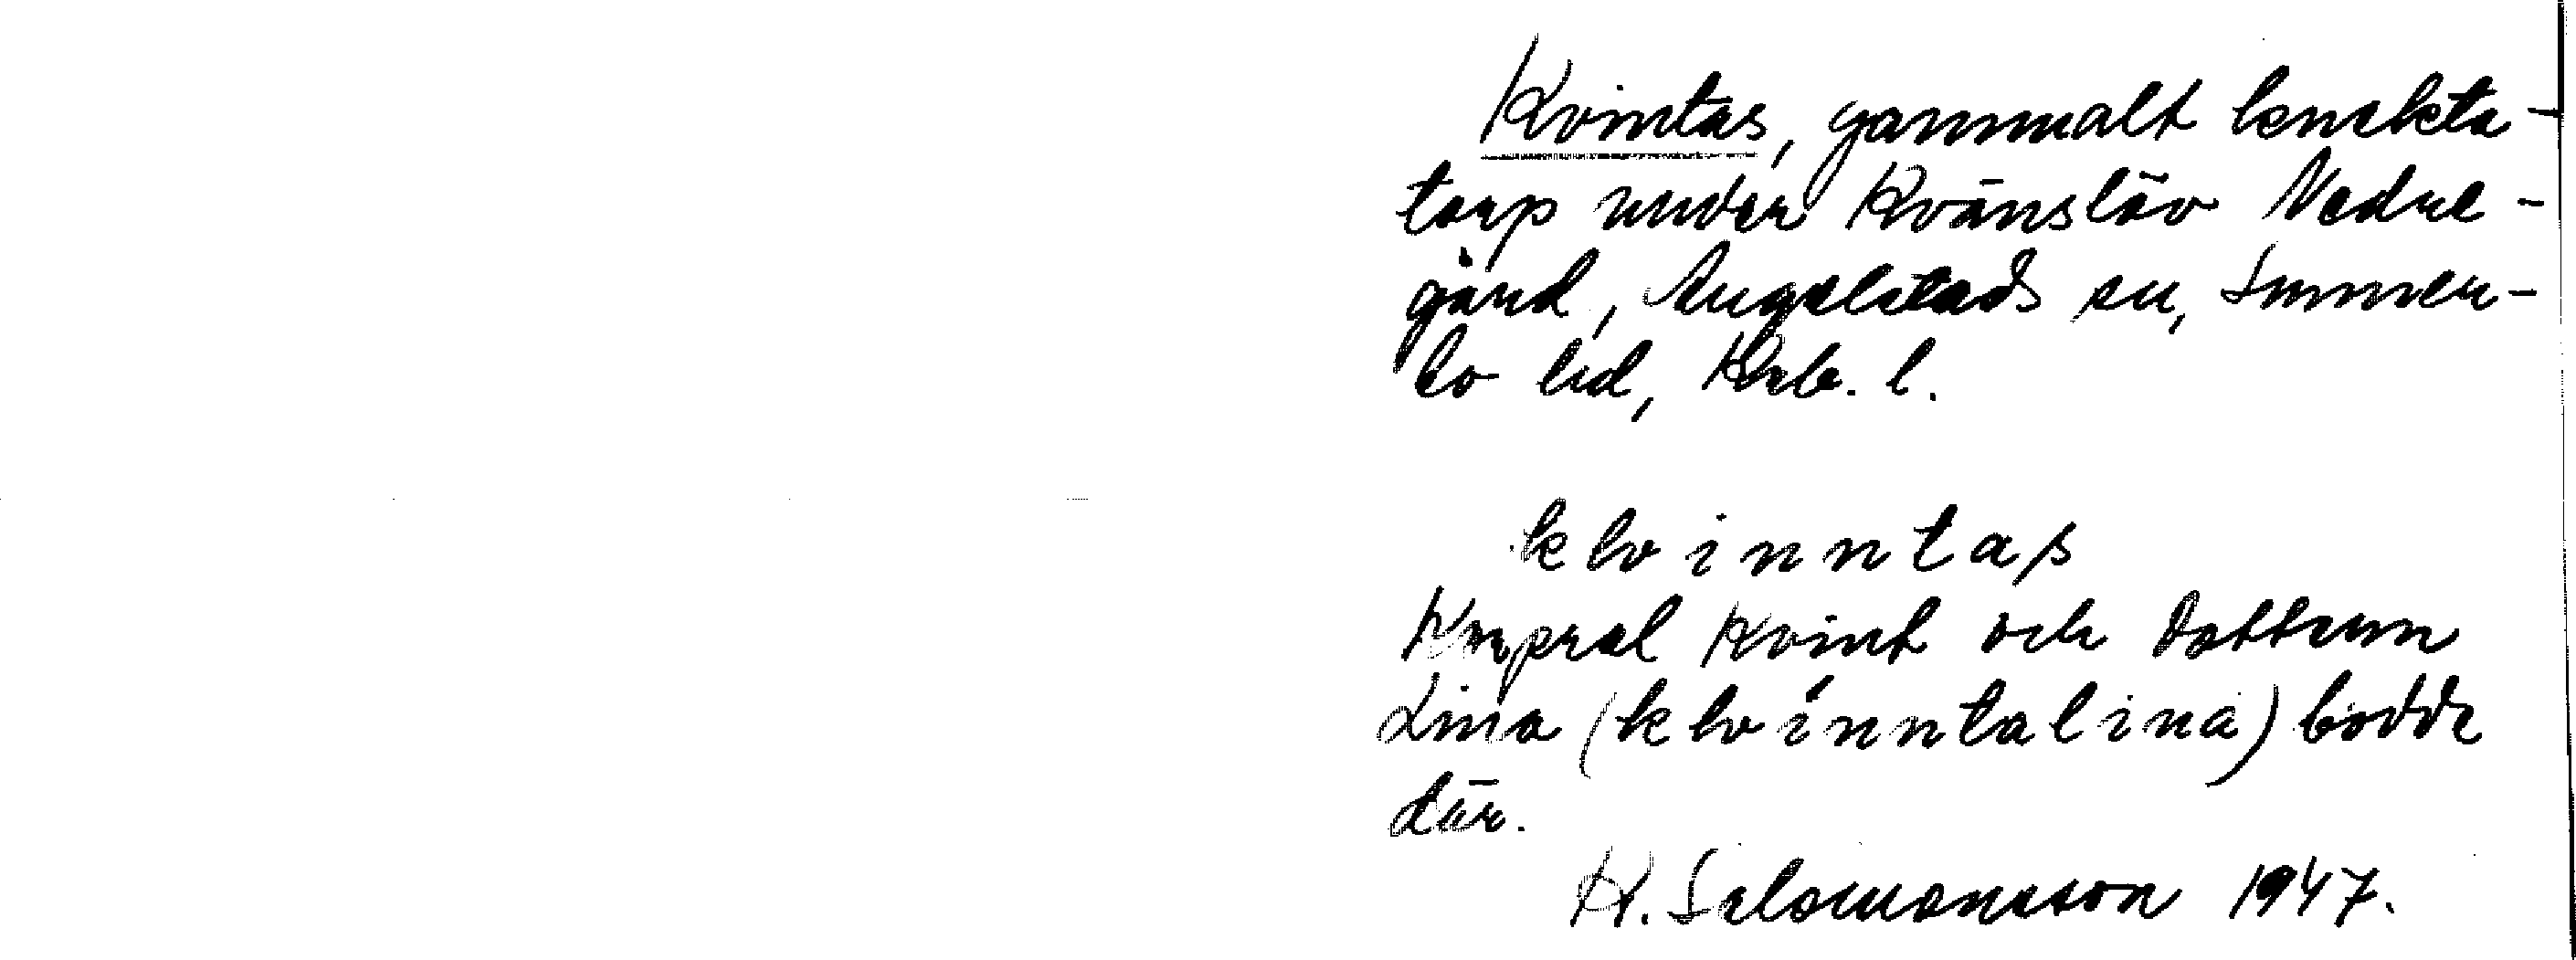 Kvintas, gammalt knekta-
torp under Kvänslöv Nedre-
gård, Angelstads sn, Sunner-
bo hd, Krb. l.
kvinntas
Korpral Kvint och dottern
Lina (kvinntalina) bodde
där.
K. Salomonsson 1947.